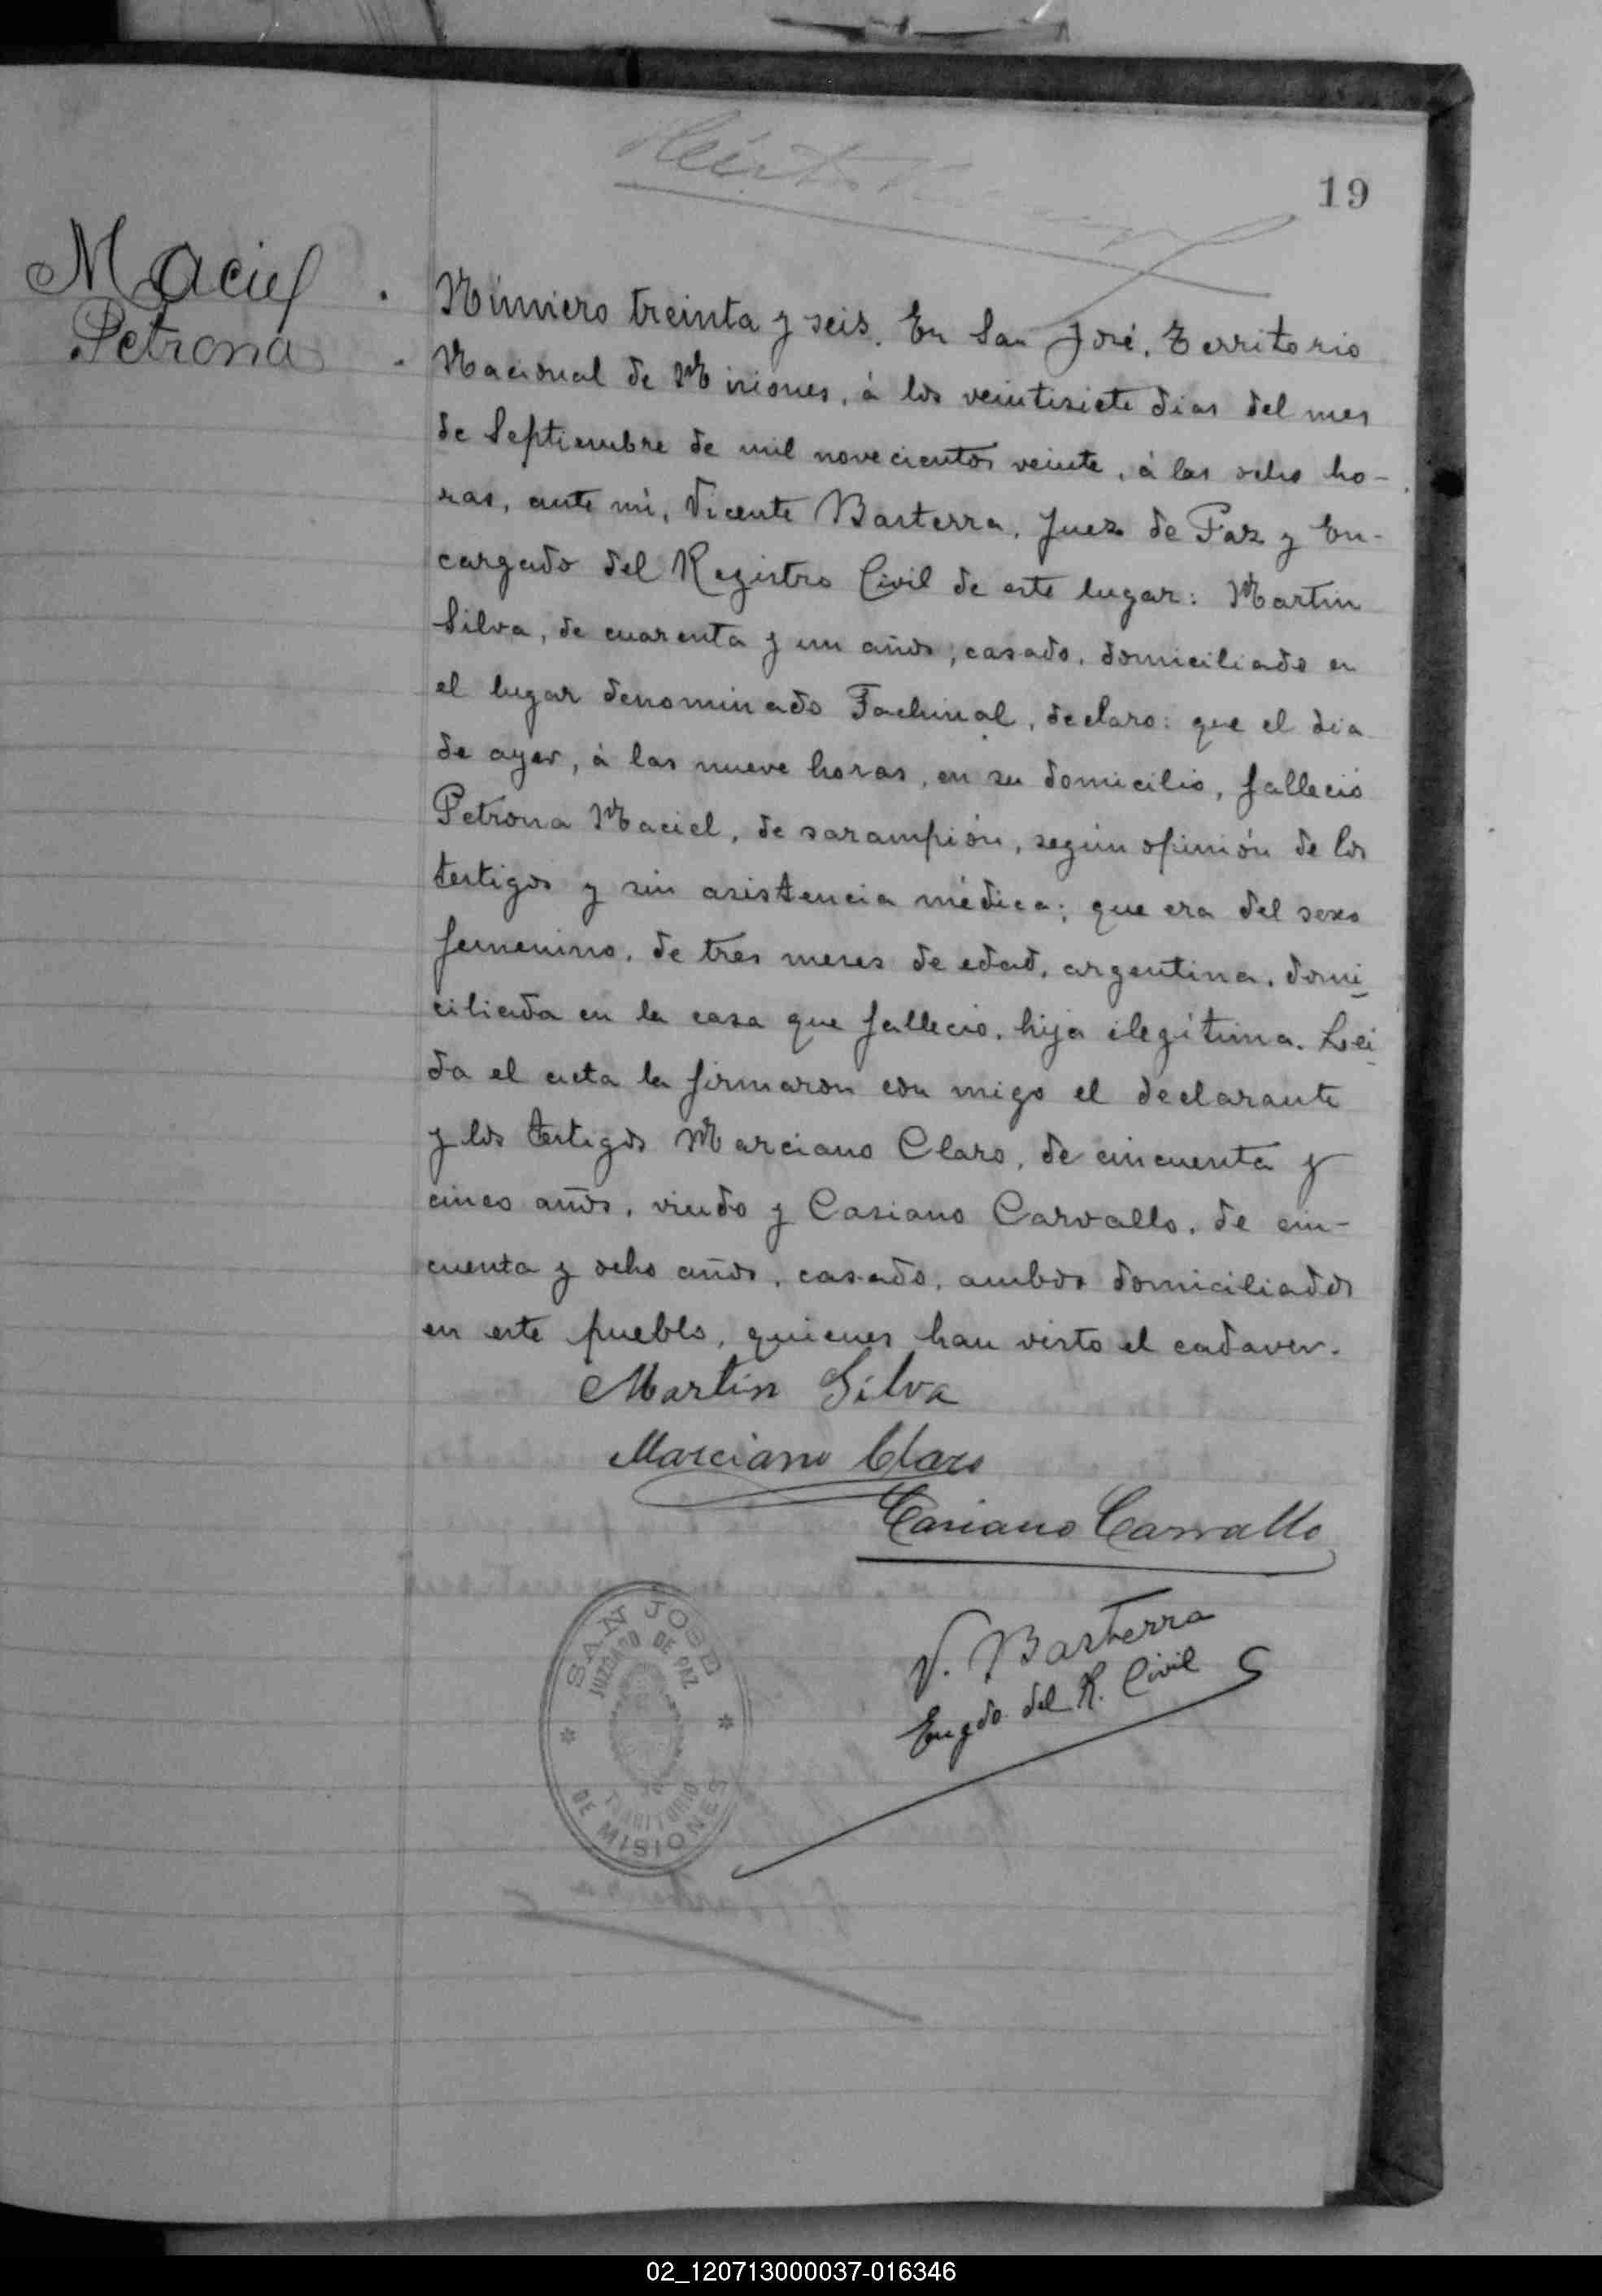 19
Maciel
Petrona
Número treinta y seis. En San José, Territorio
Nacional de Misiones, á los veintisiete dias del mes
de Septiembre de mil novecientos veinte, á las ocho ho-
ras, ante mi, Vicente Basterra, Juez de Paz y En-
cargado del Registro Civil de este lugar: Martin
Silva, de cuarenta y un años, casado, domiciliado en
el lugar denominado Fachinal, declaro: que el dia
de ayer, á las nueve horas, en su domicilio, falleció
Petrona Maciel, de sarampión, según opinión de los
testigos y sin asistencia médica; que era del sexo
femenino, de tres meses de edad, argentina, domi-
ciliada en la casa que fallecio, hija ilegítima. Lei-
da el acta la firmaron con migo el declarante
y los testigos Marciano Claro, de cincuenta y
cinco años, viudo y Casiano Carvallo, de cin-
cuenta y ocho años, casado, ambos domiciliados
en este pueblo, quienes han visto el cadaver.
Martin Silva
Marciano Claro
Casiano Carvallo
V. Basterra
Engdo. del R. Civil
SAN JOSE
JUZGADO DE PAZ
TERRITORIO
DE MISIONES
02_120713000037-016346